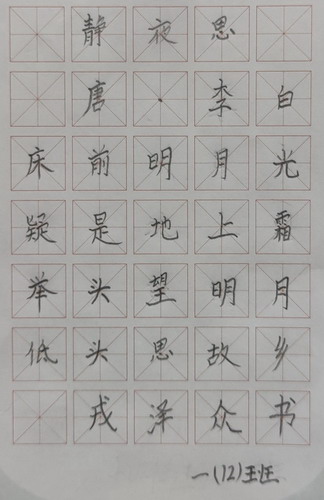 静夜思
唐·李白
床前明月光
疑是地上霜
举头望明月
低头思故乡
戎泽众书
一(12)王